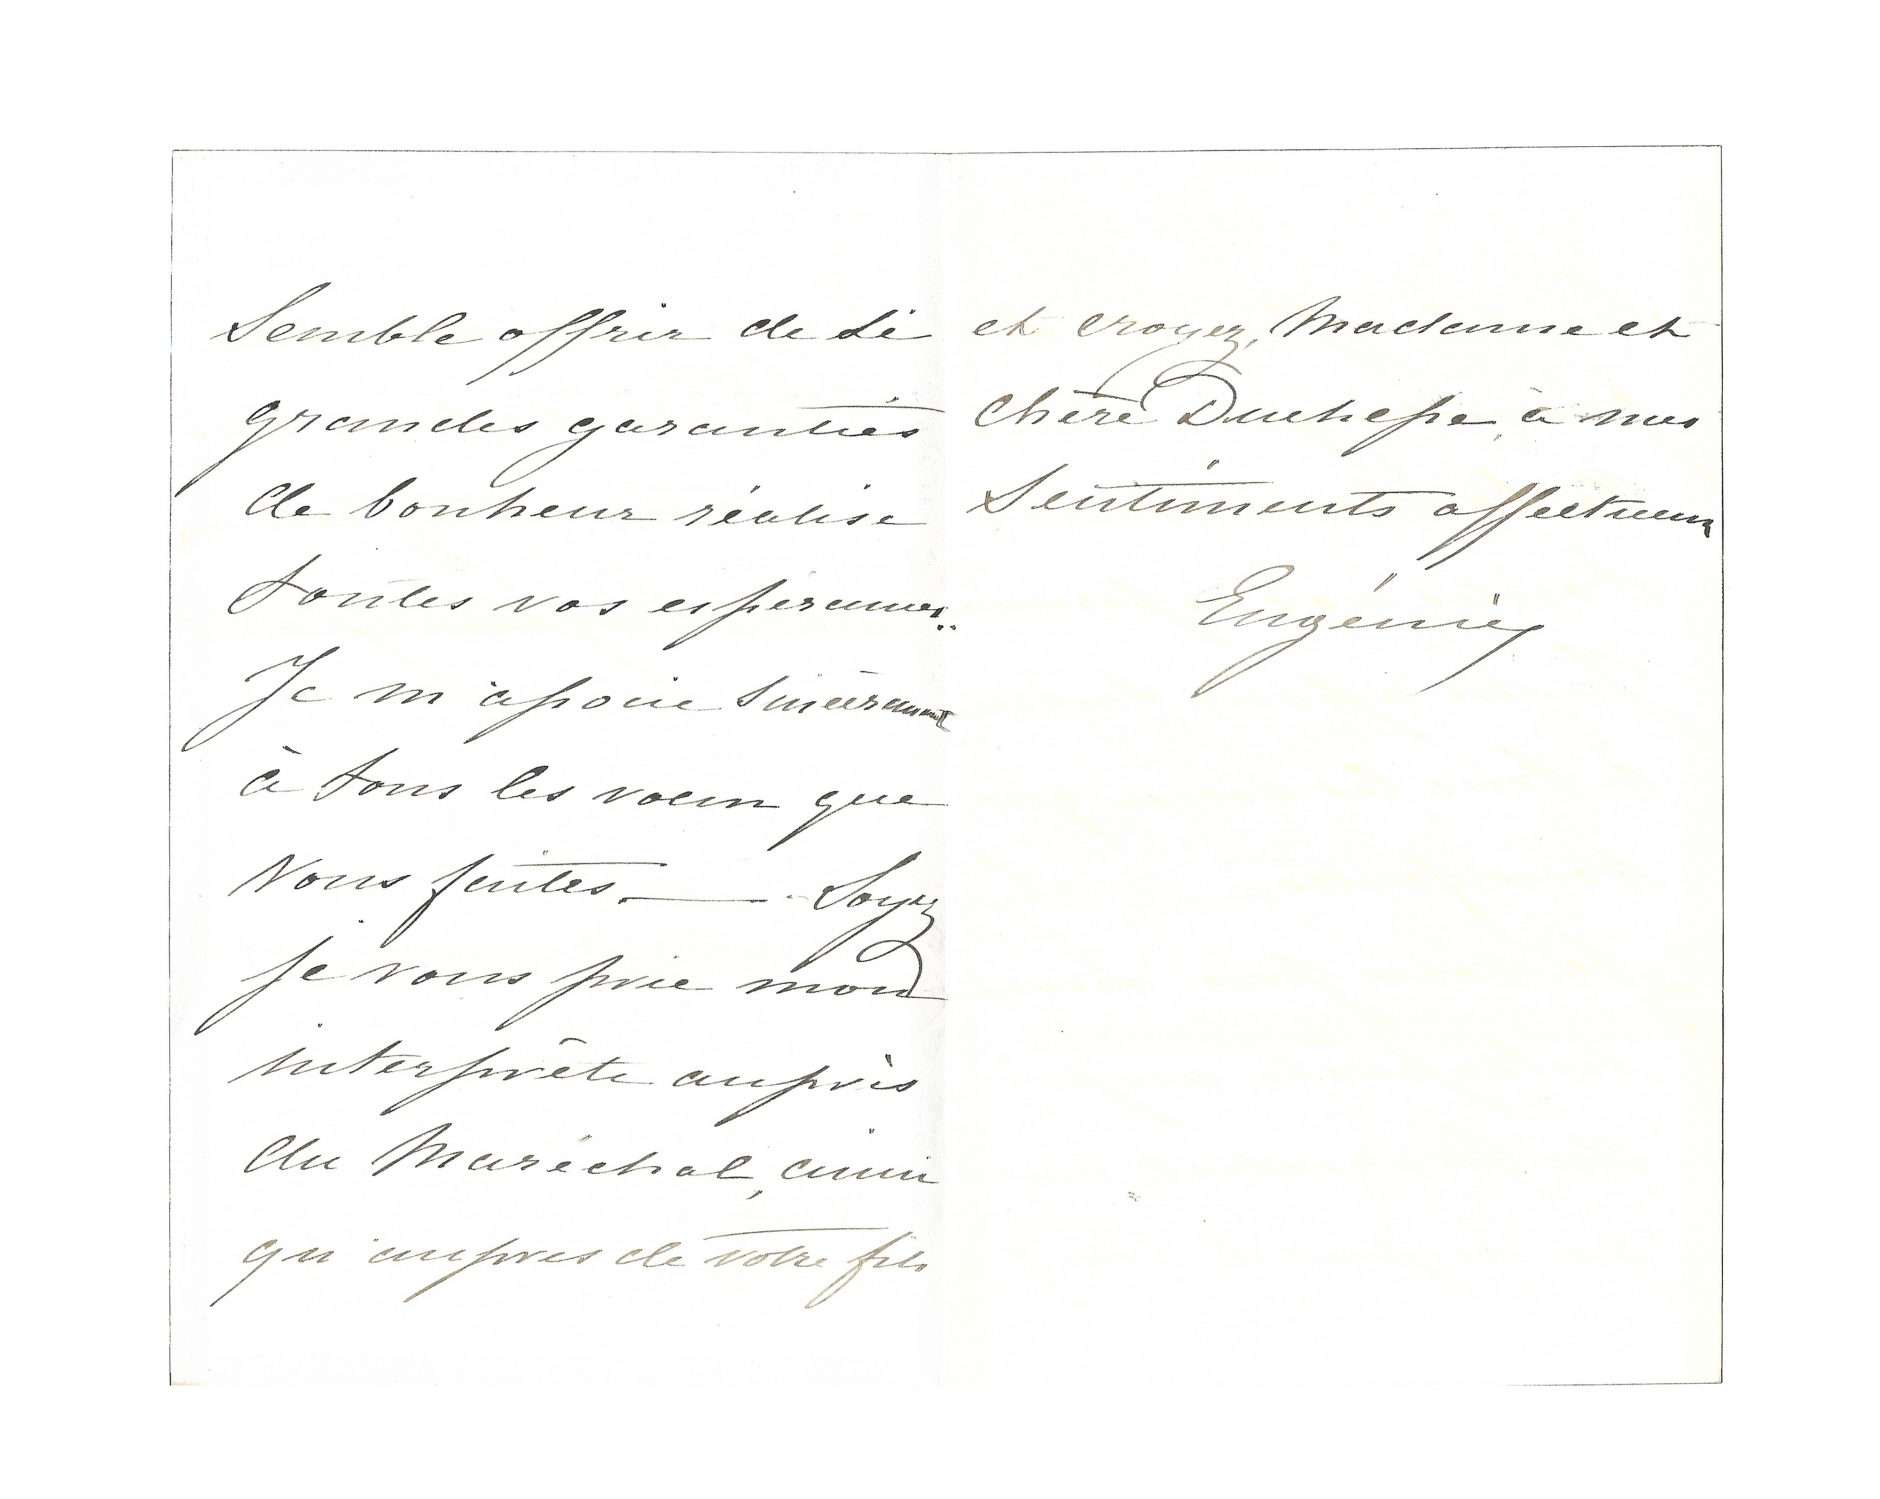 Semble offrir de si
grandes garanties
de bonheur réalise
toutes vos esperances..
Je m'associe sincèrement
à tous les voeux que
Vous faites. — Soyez
je vous prie mon
interprête auprès
du Maréchal, ainsi
qu'aupres de votre fils
et croyez, Madame et
Chère Duchesse, à mes
Sentiments affectueux
Eugénie